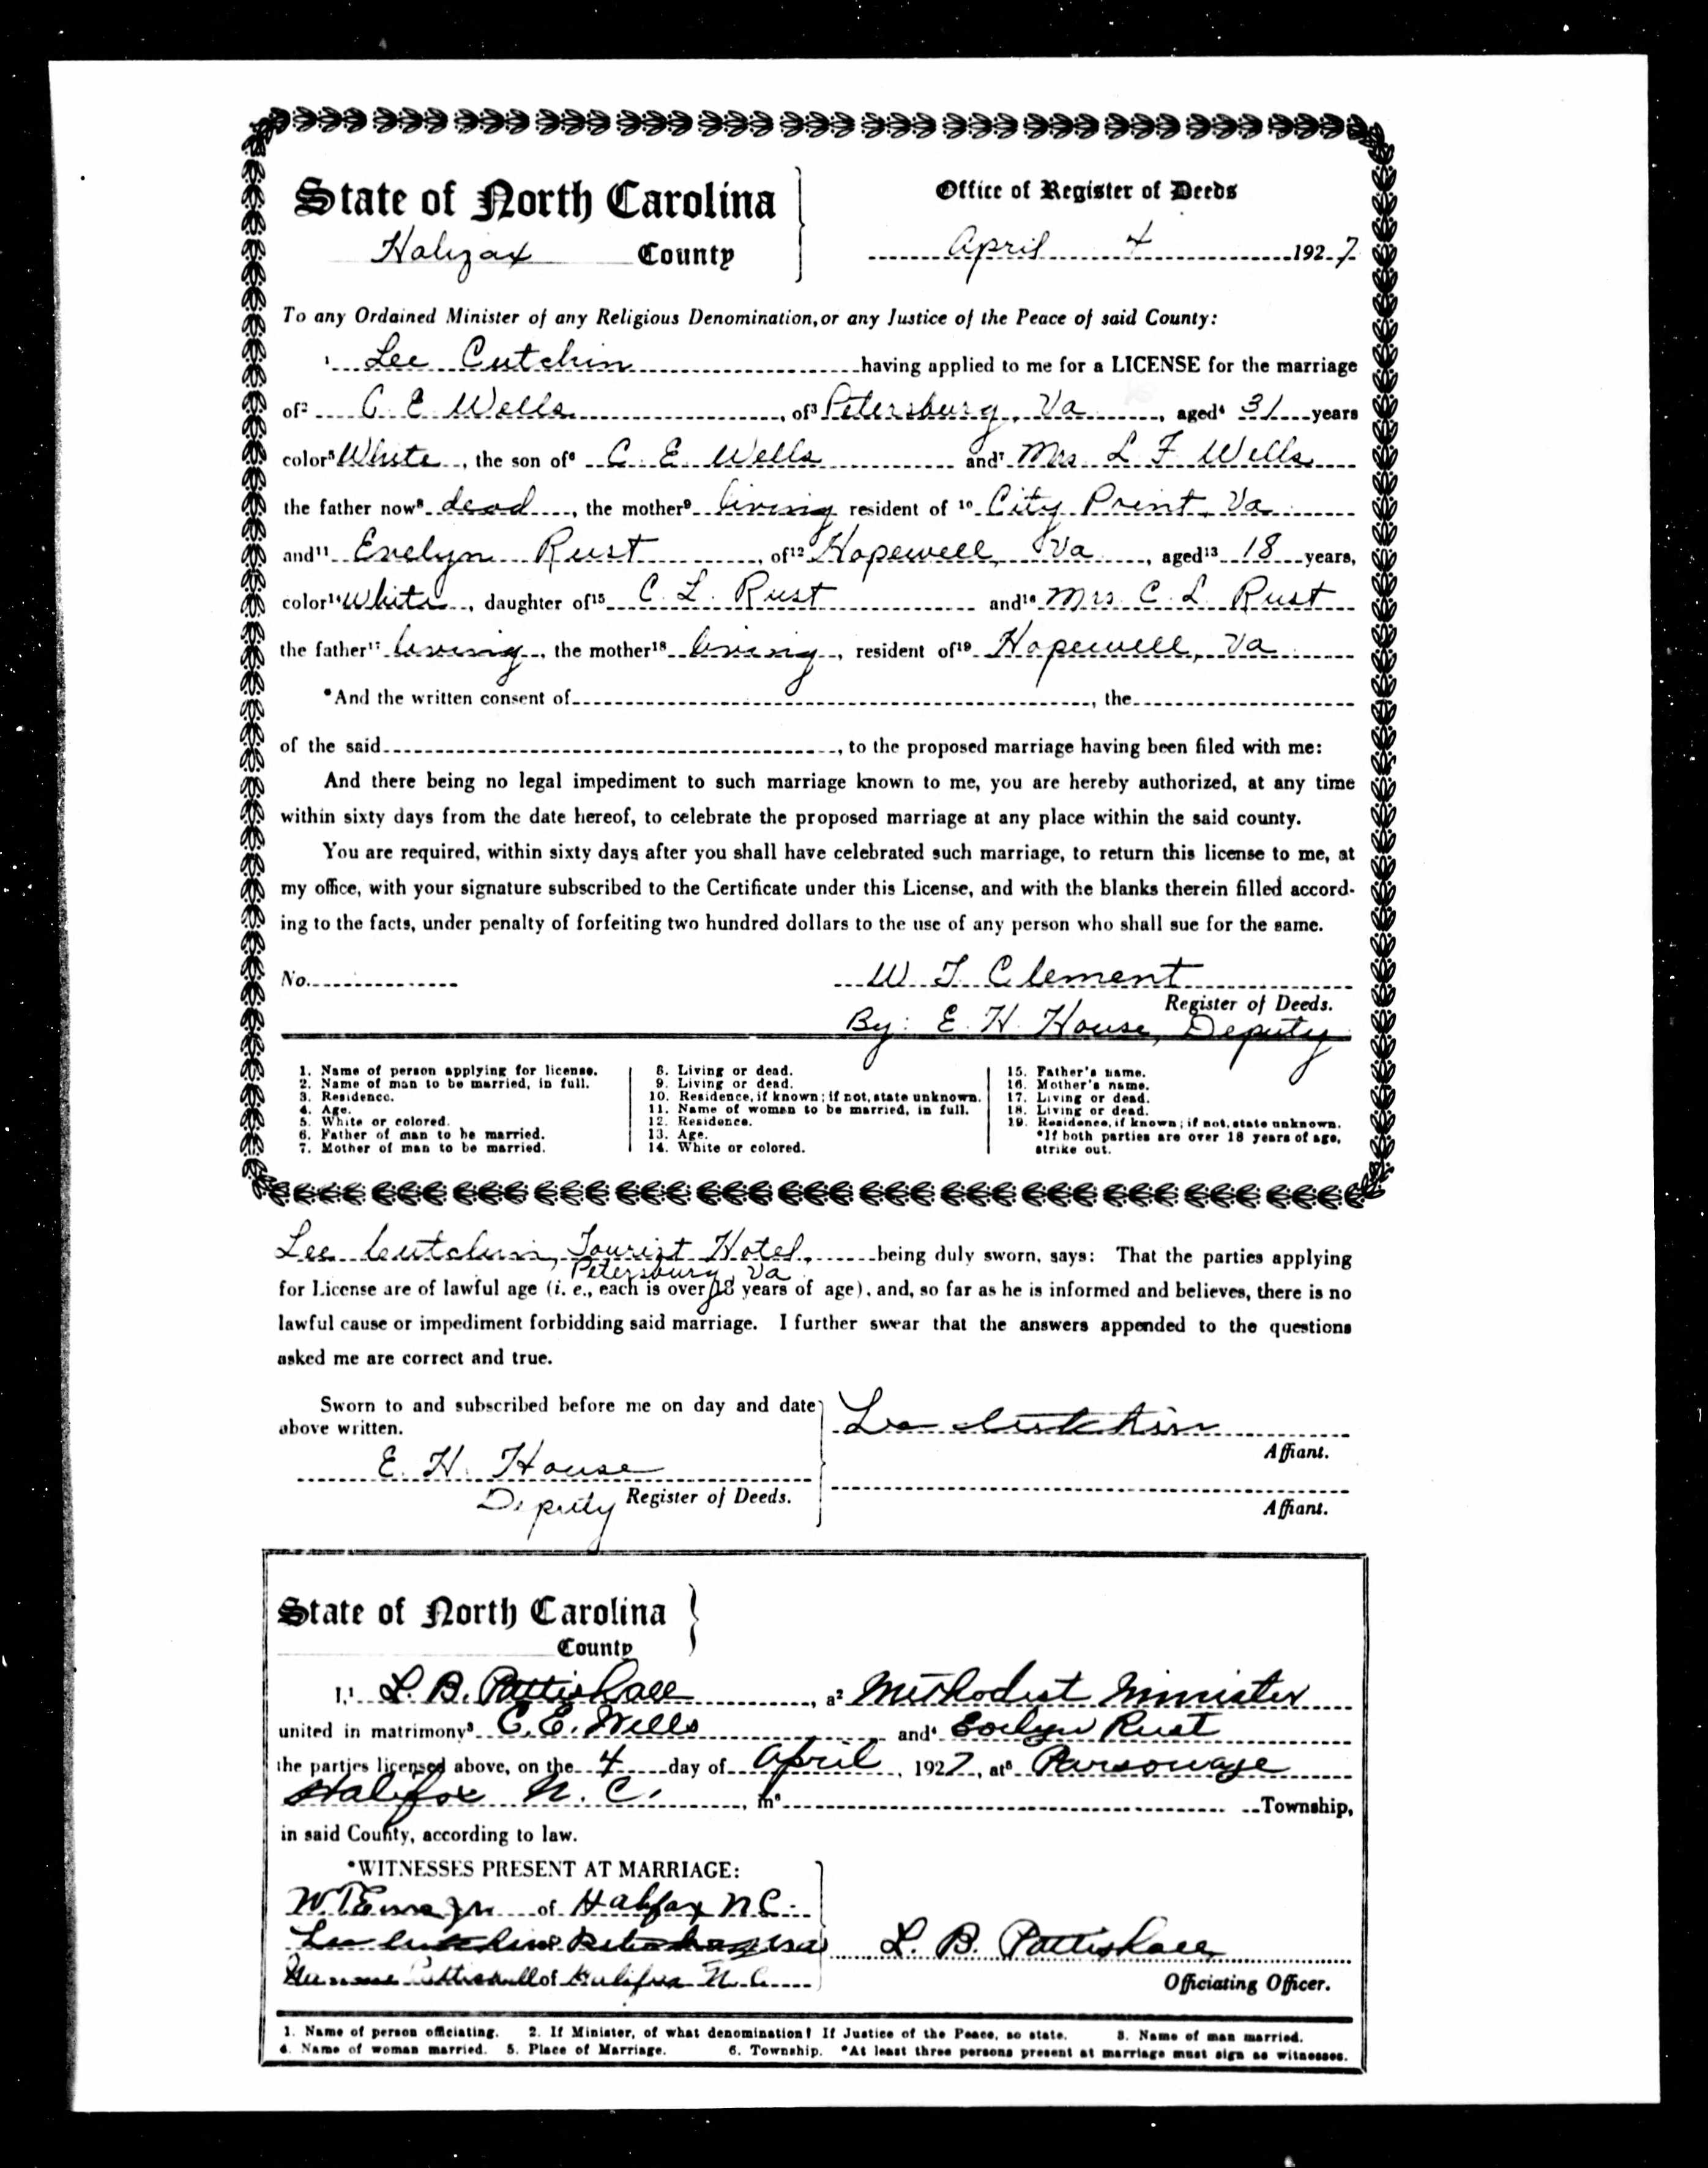 State of North Carolina
Halifax County
Office of Register of Deeds
April 4 1927
To any Ordained Minister of any Religious Denomination, or any Justice of the Peace of said County:
1 Lee Cutchin having applied to me for a LICENSE for the marriage
of2 C. E. Wells, of3 Petersburg, Va, aged4 31 years
color5 White, the son of6 C. E. Wells and7 Mrs L F Wells
the father now8 dead, the mother9 living resident of 10 City Point, Va
and11 Evelyn Rust, of12 Hopewell, Va, aged13 18 years,
color14 White, daughter of15 C. L. Rust and16 Mrs C. L. Rust
the father17 living, the mother18 living, resident of19 Hopewell, Va
*And the written consent of, the
of the said, to the proposed marriage having been filed with me:
And there being no legal impediment to such marriage known to me, you are hereby authorized, at any time
within sixty days from the date hereof, to celebrate the proposed marriage at any place within the said county.
You are required, within sixty days after you shall have celebrated such marriage, to return this license to me, at
my office, with your signature subscribed to the Certificate under this License, and with the blanks therein filled accord-
ing to the facts, under penalty of forfeiting two hundred dollars to the use of any person who shall sue for the same.
No.
W T. Clement
Register of Deeds.
By: E. H. House, Deputy
1. Name of person applying for license.
2. Name of man to be married, in full.
3. Residence.
4. Age.
5. White or colored.
6. Father of man to be married.
7. Mother of man to be married.
8. Living or dead.
9. Living or dead.
10. Residence, if known; if not, state unknown.
11. Name of woman to be married, in full.
12. Residence.
13. Age.
14. White or colored.
15. Father's name.
16. Mother's name.
17. Living or dead.
18. Living or dead.
19. Residence, if known; if not, state unknown.
*If both parties are over 18 years of age,
strike out.
Lee Cutchin, Tourist Hotel, being duly sworn, says: That the parties applying
Petersburg, Va
for License are of lawful age (i. e., each is over 18 years of age), and, so far as he is informed and believes, there is no
lawful cause or impediment forbidding said marriage. I further swear that the answers appended to the questions
asked me are correct and true.
Sworn to and subscribed before me on day and date
above written.
E. H. House
Deputy Register of Deeds.
Lee Cutchin
Affiant.
Affiant.
State of North Carolina
County
I,1 L. B. Pattishall, a2 Methodist Minister
united in matrimony3 C. E. Wells and4 Evelyn Rust
the parties licensed above, on the 4 day of April, 1927, at5 Parsonage
Halifax N. C., in6 Township,
in said County, according to law.
*WITNESSES PRESENT AT MARRIAGE:
of Halifax N C.
Lee Cutchin Petersburg Va
Pattishall of Halifax N. C.
L. B. Pattishall
Officiating Officer.
1. Name of person officiating. 2. If Minister, of what denomination? If Justice of the Peace, so state. 3. Name of man married.
4. Name of woman married. 5. Place of Marriage. 6. Township. *At least three persons present at marriage must sign as witnesses.